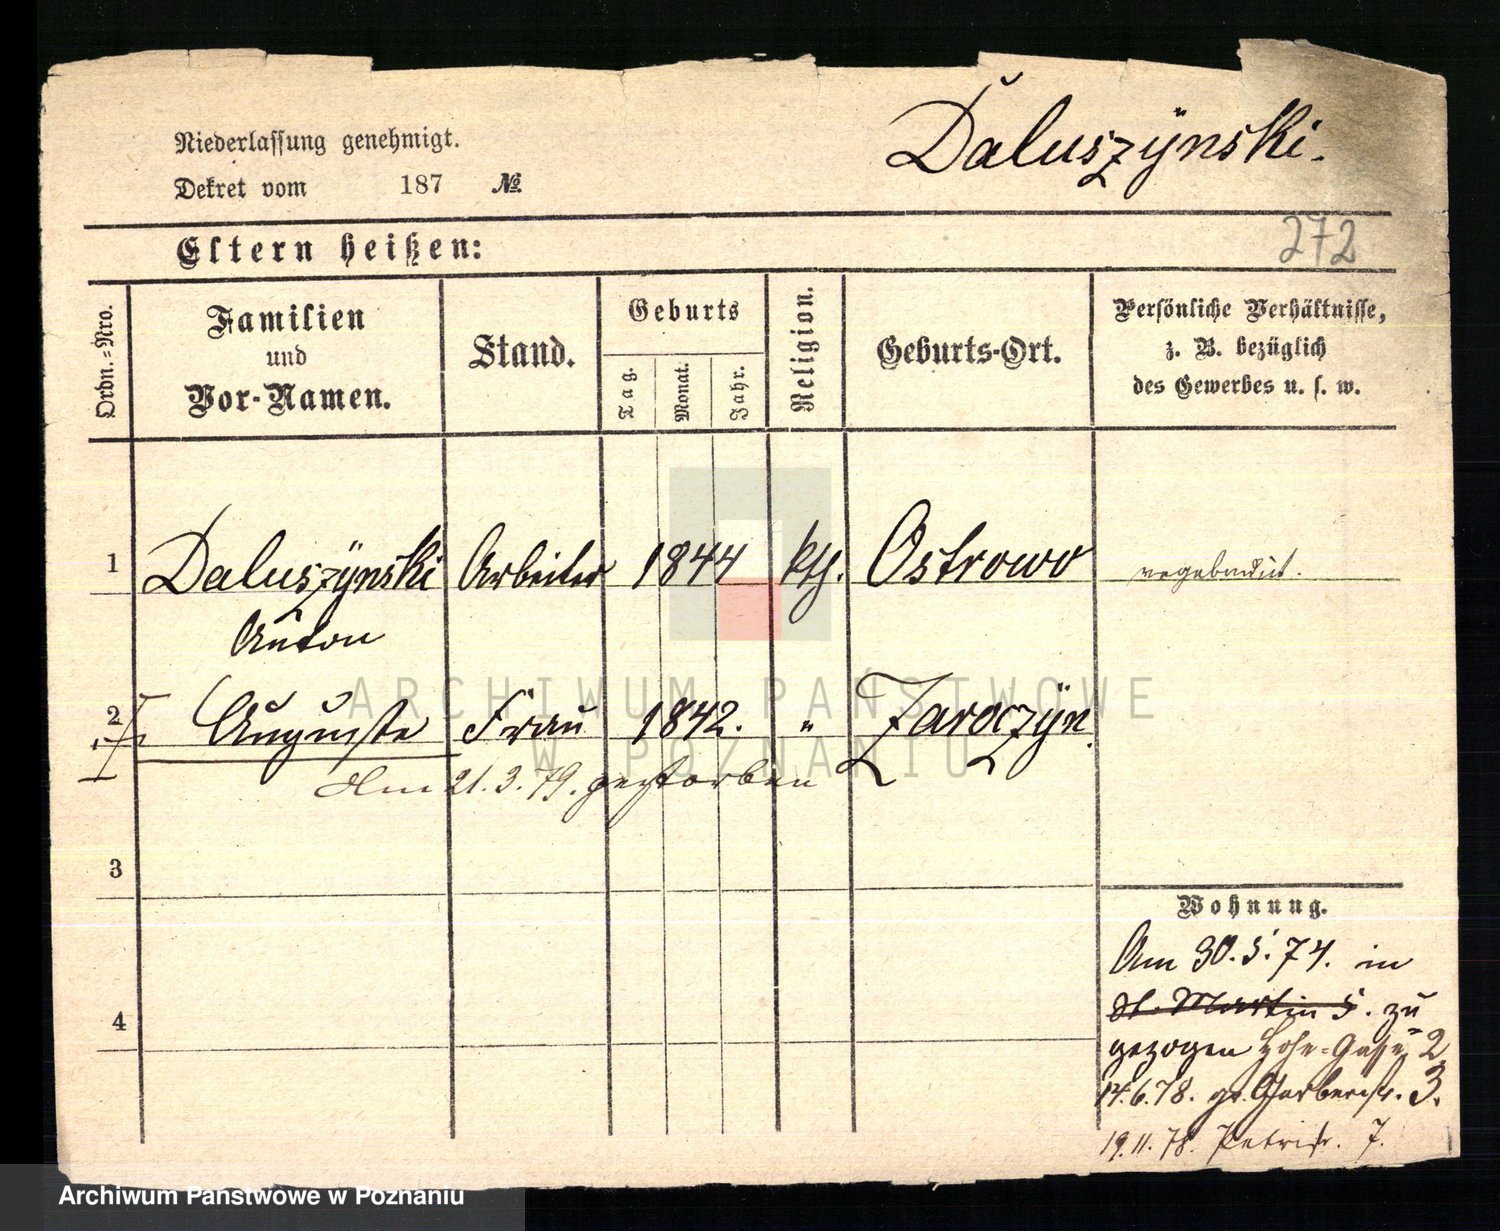 Niederlassung genehmigt.
Dekret vom 187 №
Daluszÿnski.
272
Eltern heißen:
Ordn.=Nro.
Familien
und
Vor-Namen.
Stand.
Geburts
Tag.
Monat.
Jahr.
Religion.
Geburts-Ort.
Persönliche Verhältnisse,
z. B. bezüglich
des Gewerbes u. s. w.
1 Daluszÿnski Arbeiter 1844 kth. Ostrowo
Anton
2 Auguste Frau 1842. " Zaroczÿn.
Am 21.3.79. gestorben
3
4
Wohnung.
Am 30.5.74. in
St. Martin 5. zu
gezogen Hohe=Gasse 2
14.6.78. gr. Gerberstr. 3.
19.11.78. Petristr. 7.
ARCHIWUM PAŃSTWOWE
W POZNANIU
Archiwum Państwowe w Poznaniu